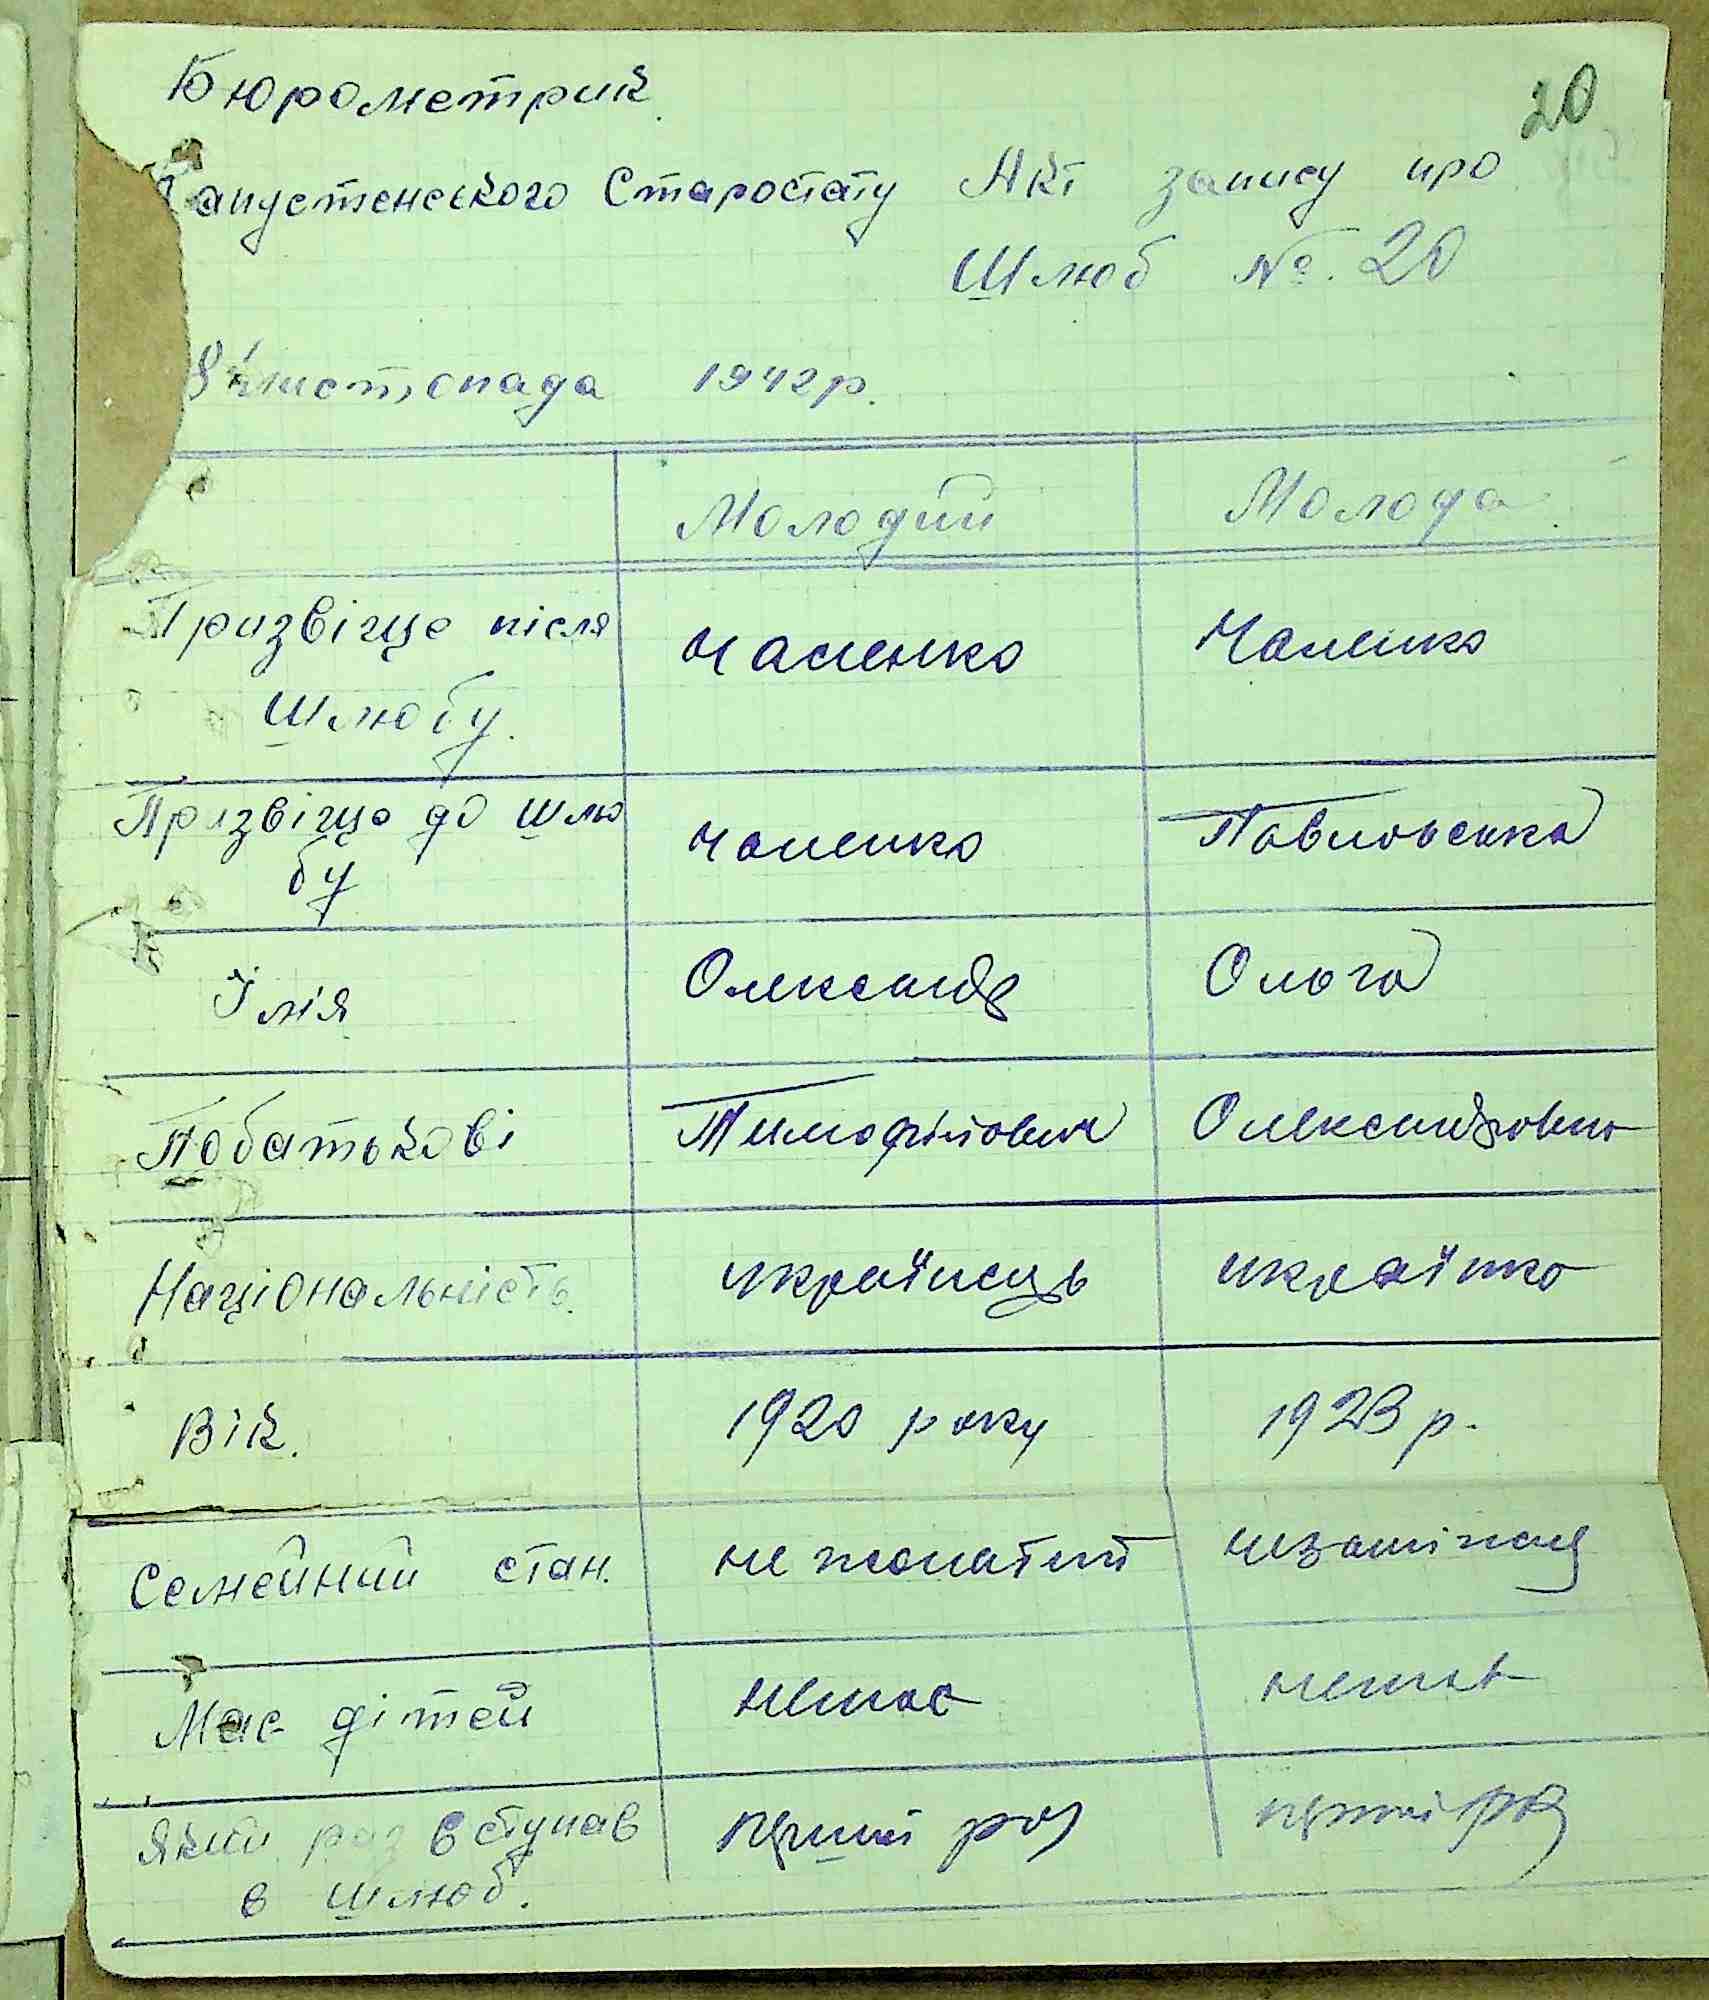 Бюрометрик.
20
Капустенського Старостату Акт запису про
Шлюб №. 20
8 листопада 1942 р.
Молодий Молода
Призвіще після Чаленко Чаленко
Шлюбу.
Призвіще до шлю Чаленко Павловська
бу
Імія Олександр Ольга
Побатькові Тимофійович Олександровна
Національність. українець українка
Вік. 1920 року 1923 р.
Семейний стан. не жонатий незаміжня
Має дітей немає немає
Який раз вступав перший раз перший раз
в шлюб.